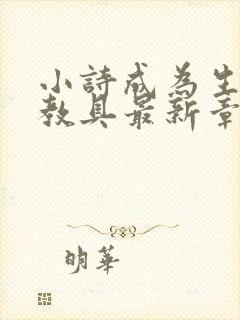 小詩成為生
教具最新章
明華